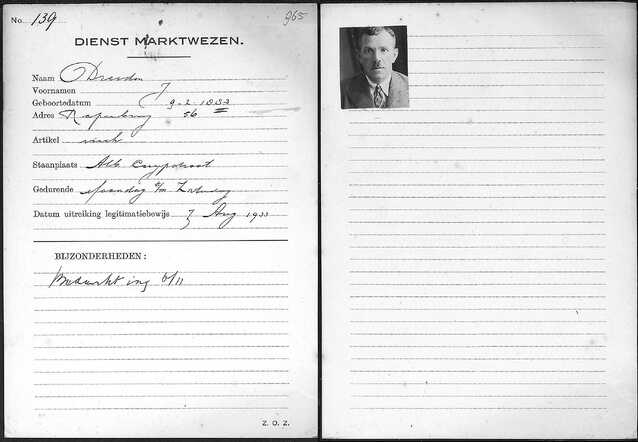 No. 139
965
DIENST MARKTWEZEN.
Naam Dresden
Voornamen J
Geboortedatum 9-2-1883
Adres Rapenburg 56
Artikel visch
Staanplaats Alb Cuypstraat
Gedurende Maandag t/m Zaterdag
Datum uitreiking legitimatiebewijs 7 Aug 1933
BIJZONDERHEDEN:
ing 6/11
Z. O. Z.